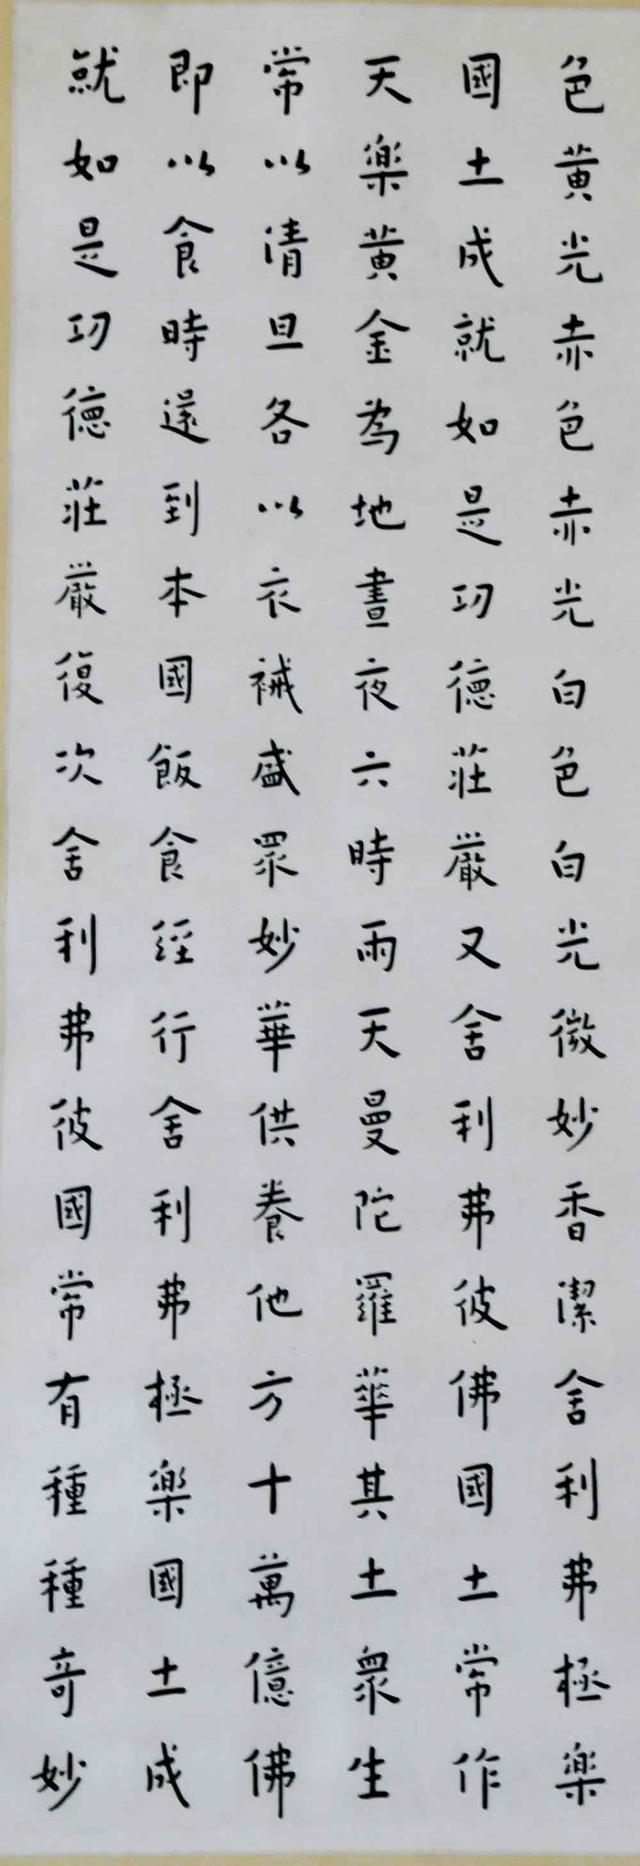 色黃光赤色赤光白色白光微妙香潔舍利弗極樂
國土成就如是功德莊嚴又舍利弗彼佛國土常作
天樂黃金為地晝夜六時雨天曼陀羅華其土眾生
常以清旦各以衣裓盛眾妙華供養他方十萬億佛
即以食時還到本國飯食經行舍利弗極樂國土成
就如是功德莊嚴復次舍利弗彼國常有種種奇妙